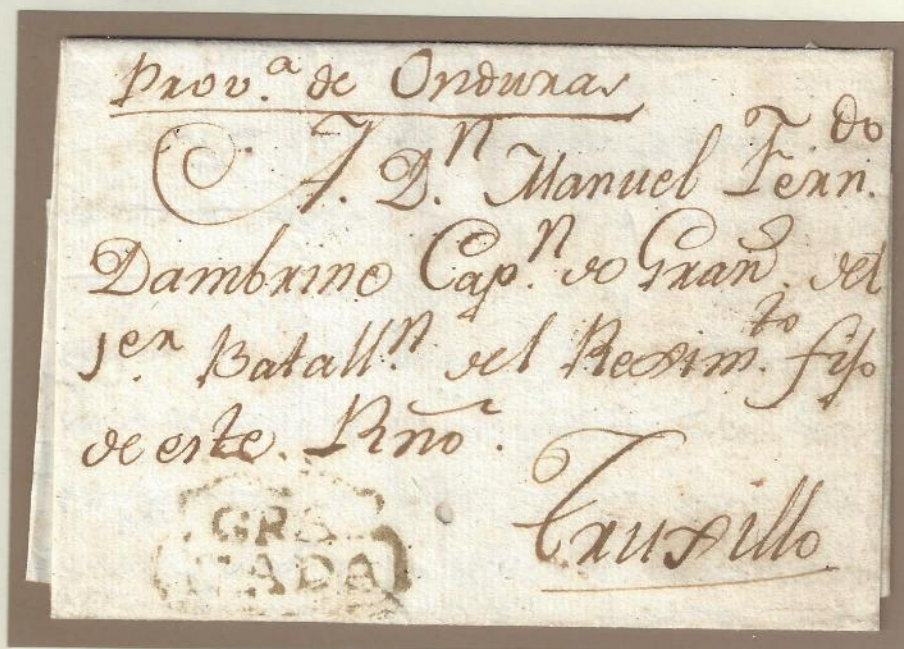 Prov.ª de Onduras
A. D.ⁿ Manuel Fern.do
Dambrine Cap.ⁿ de Gran.s del
1er Batall.ⁿ del Reximto. fijo
de este Rnõ.
Truxillo
GRA
NADA